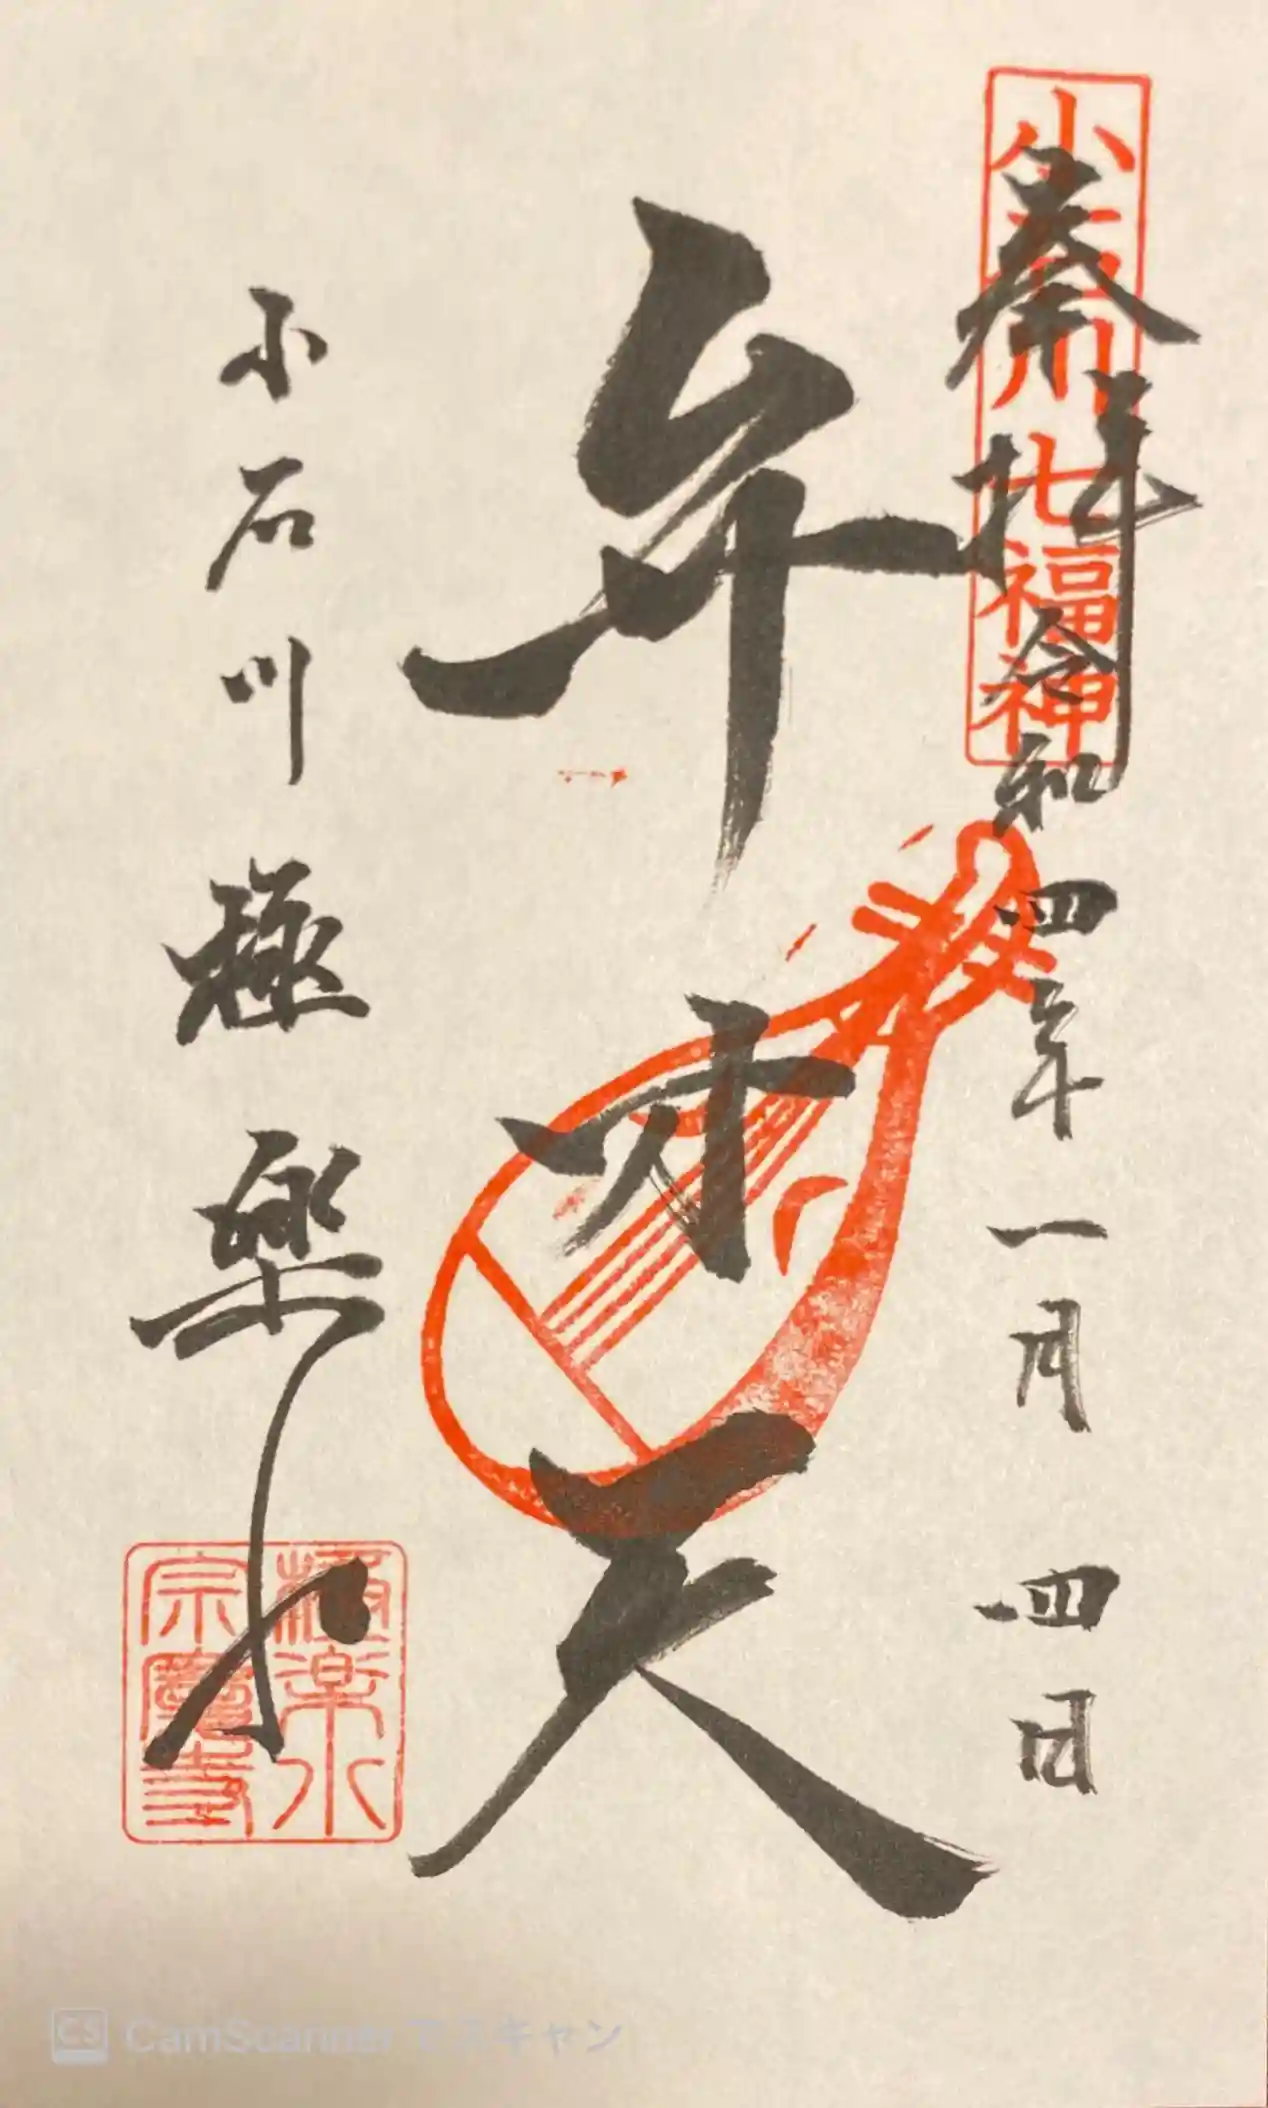 小石川七福神
奉拝 令和四年一月四日
弁才天
小石川 極楽水
極楽水
宗慶寺
CS CamScanner でスキャン